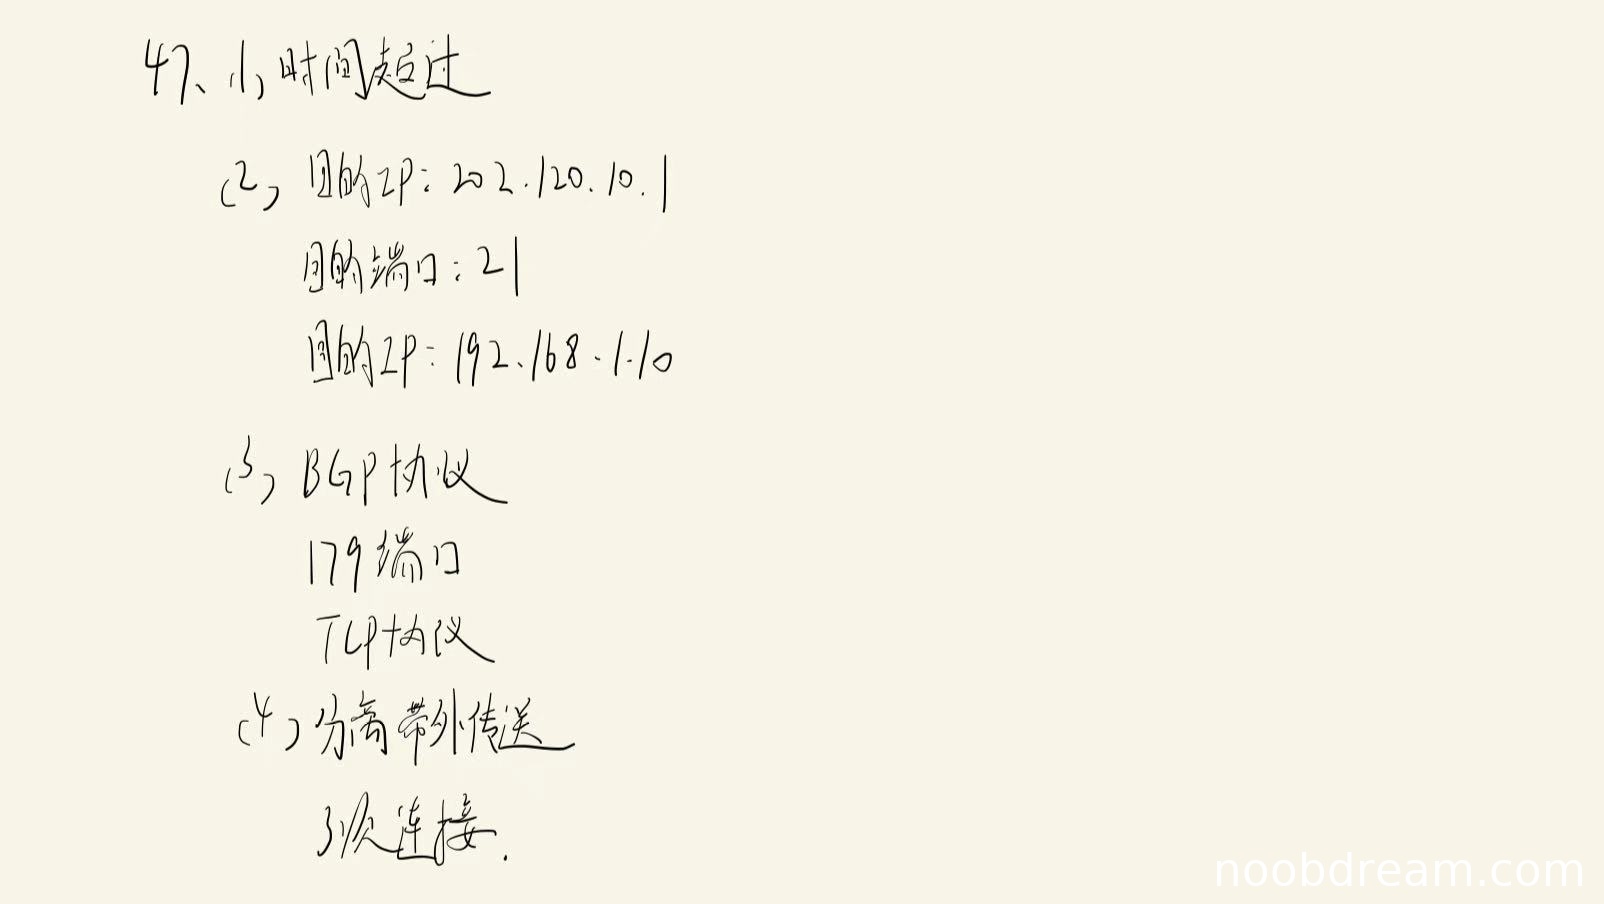 47、(1) 时间超过
(2) 目的IP：202.120.10.1
目的端口：21
目的IP：192.168.1.10
(3) BGP协议
179端口
TCP协议
(4) 分离 带外传送
3次连接.
noobdream.com